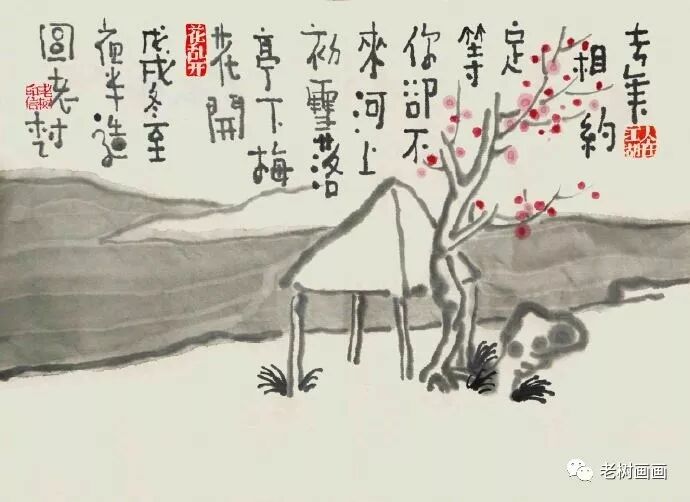 去年
相約
定
等
你卻不
來河上
初雪落
亭下梅
花開
戊戌冬至
夜半造
圖老树
人在江湖
花乱开
老树画画